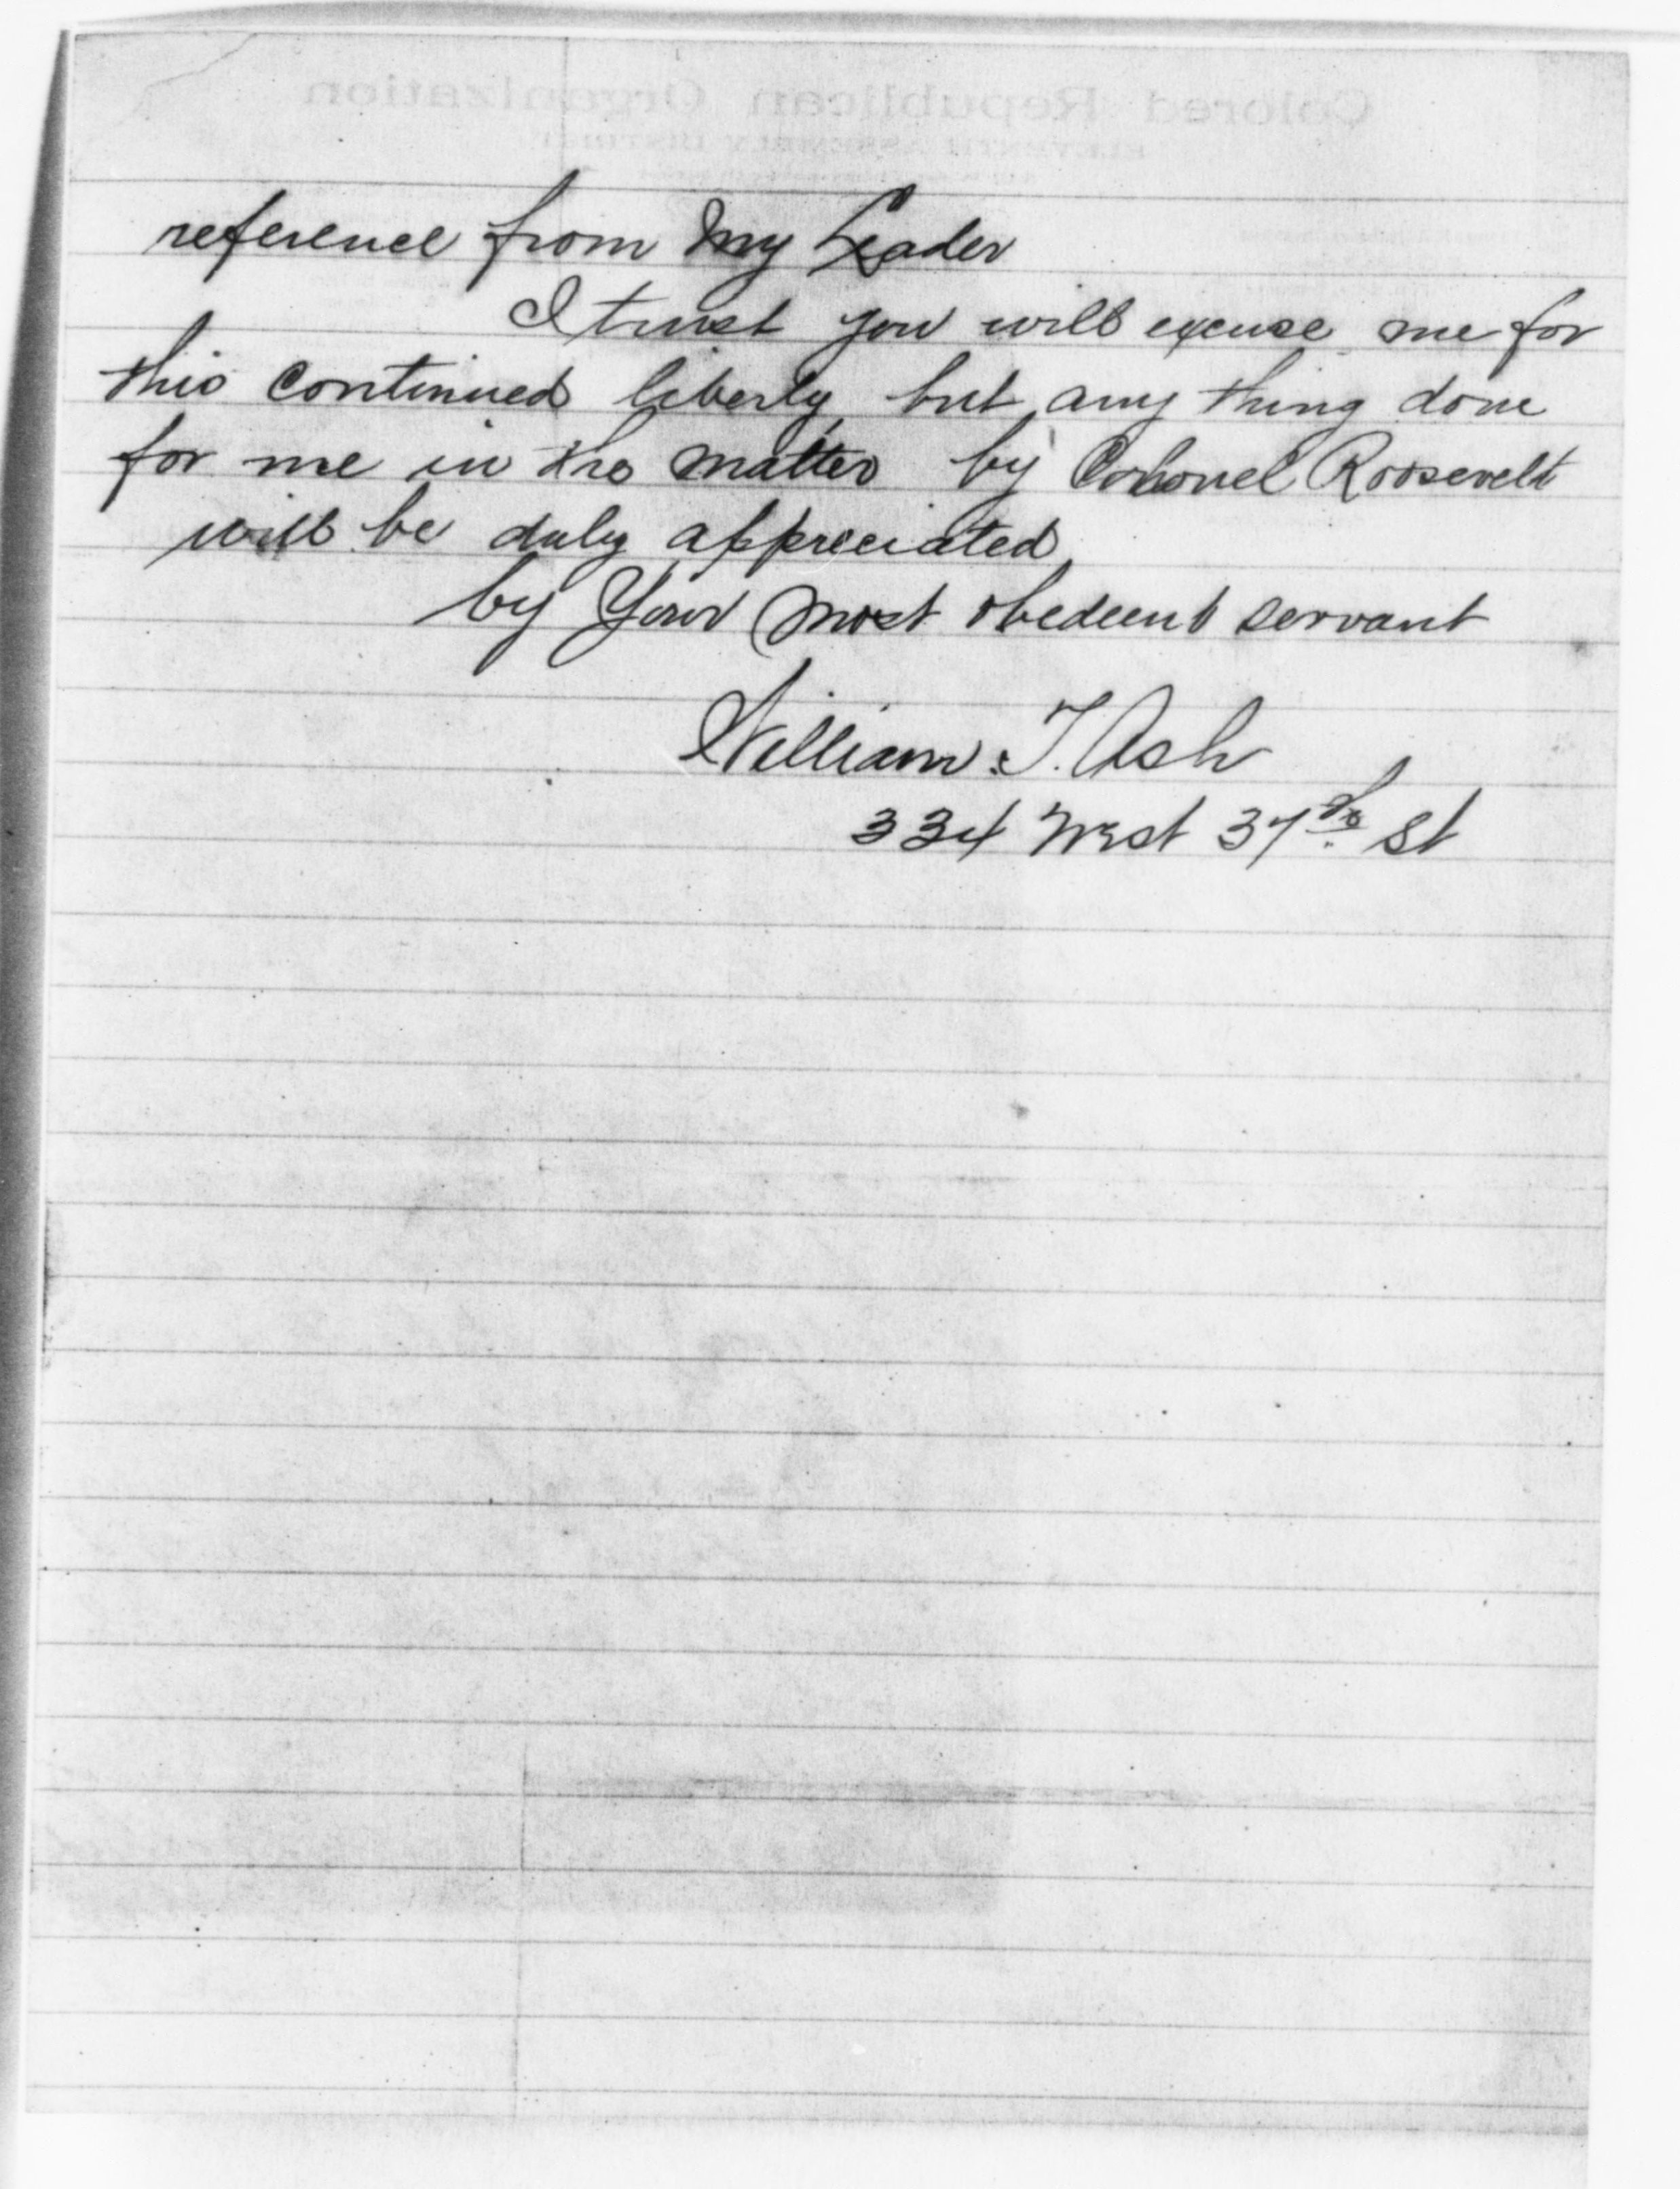 Colored Republican Organization
ELEVENTH ASSEMBLY DISTRICT
reference from My Leader
I trust you will excuse me for
this continued liberty but any thing done
for me in the matter by Colonel Roosevelt
will be duly appreciated
by Your most obedeent servant
William. T. Ash
334 West 37th St